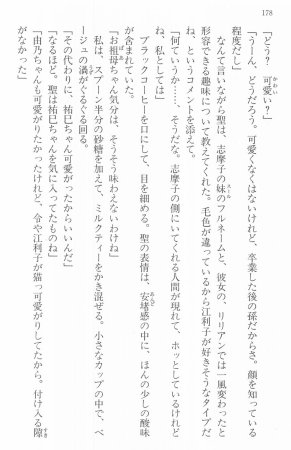 178
「どう？　可愛い？」
「うーん、どうだろう。可愛くなくはないけれど、卒業した後の孫だからさ。顔を知っている
程度だし」
なんて言いながら聖は、志摩子の妹のフルネームと、彼女の、リリアンでは一風変わったと
形容できる趣味について教えてくれた。毛色が違っているから江利子が好きそうなタイプだ
ね、というコメントを添えて。
「何ていうか……そうだな。志摩子の側にいてくれる人間が現れて、ホッとしているけれど
ね、私としては」
ブラックコーヒーを口にして、目を細める。聖の表情は、安堵感の中に、ほんの少しの酸味
が含まれていた。
「お祖母ちゃん気分は、そうそう味わえないわけね」
私は、スプーン半分の砂糖を加えて、ミルクティーをかき混ぜる。小さなカップの中で、ベ
ージュの渦がぐるぐる回る。
「その代わりに、祐巳ちゃん可愛がったからいいんだ」
「なるほど。聖は祐巳ちゃんを気に入ってたものね」
「由乃ちゃんも可愛がりたかったけれど、令や江利子が猫っ可愛がりしてたから。付け入る隙
がなかった」